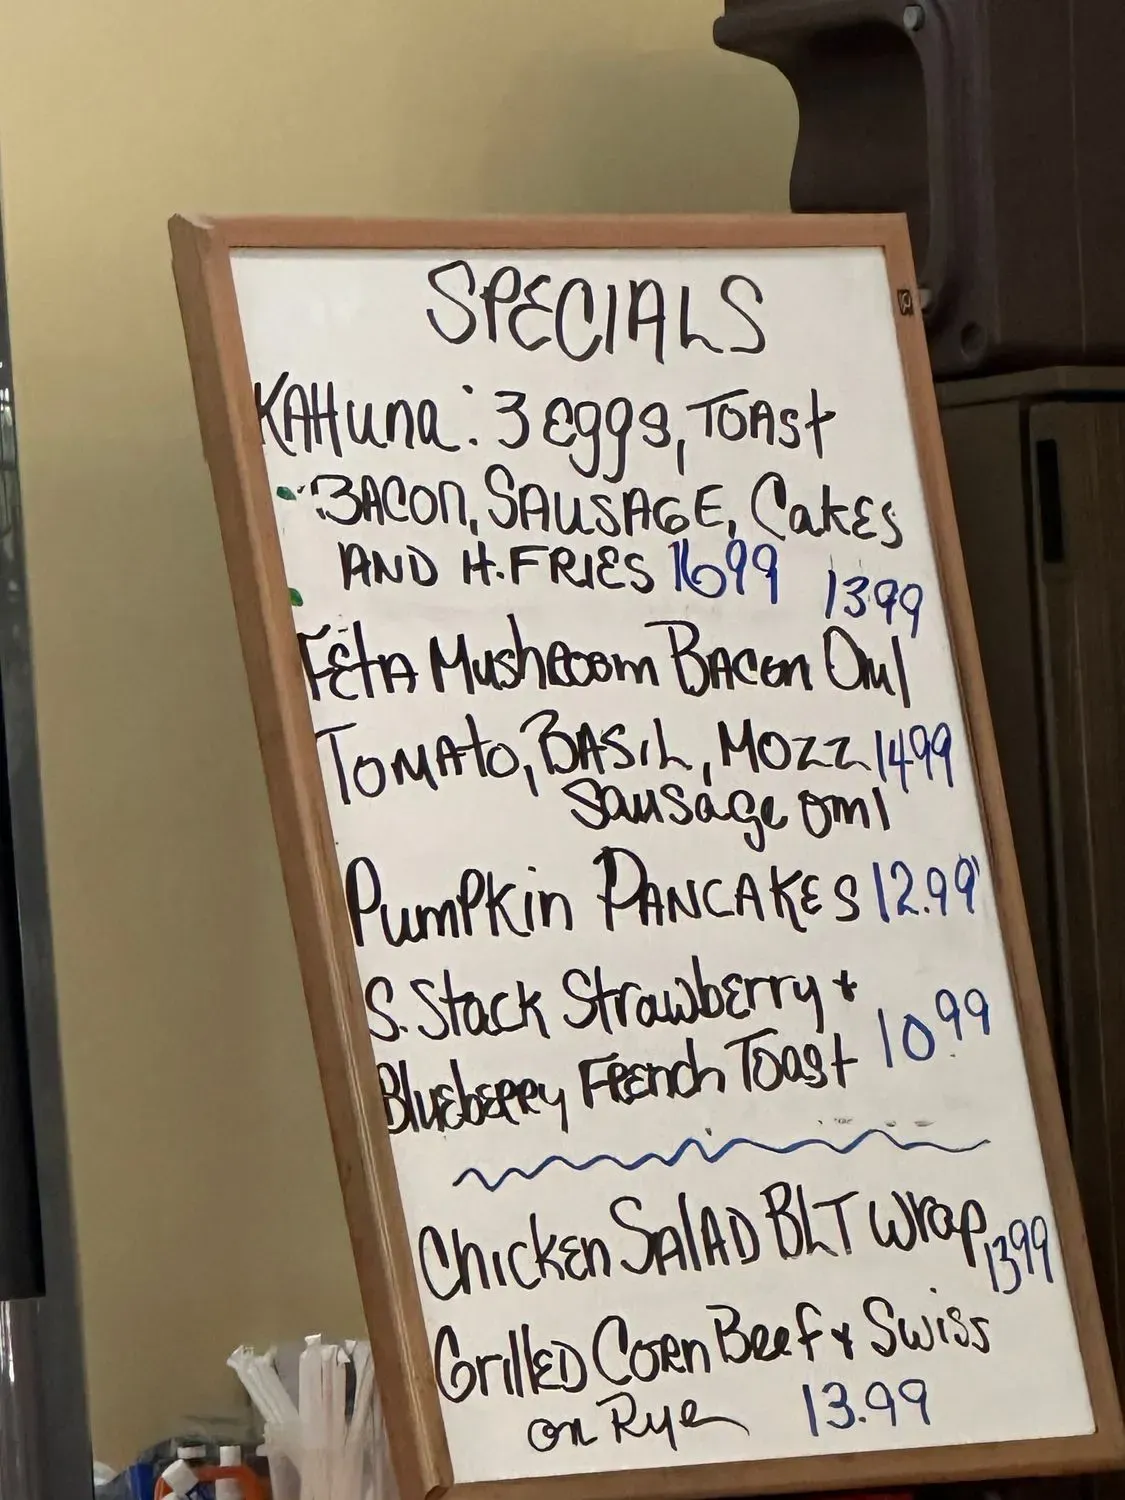 SPECIALS
KAHuna: 3 Eggs, TOAST
BACON, SAUSAGE, CAKES
AND H.FRIES 1699
1399
FETA Mushroom BACON Oml
TOMATO, BASIL, MOZZ 1499
Sausage oml
PumPkin PANCAKES 12.99
S. Stack Strawberry +
Blueberry French Toast 10.99
Chicken SALAD BLT Wrap 1399
GrillED Corn Beef + Swiss
on Rye 13.99